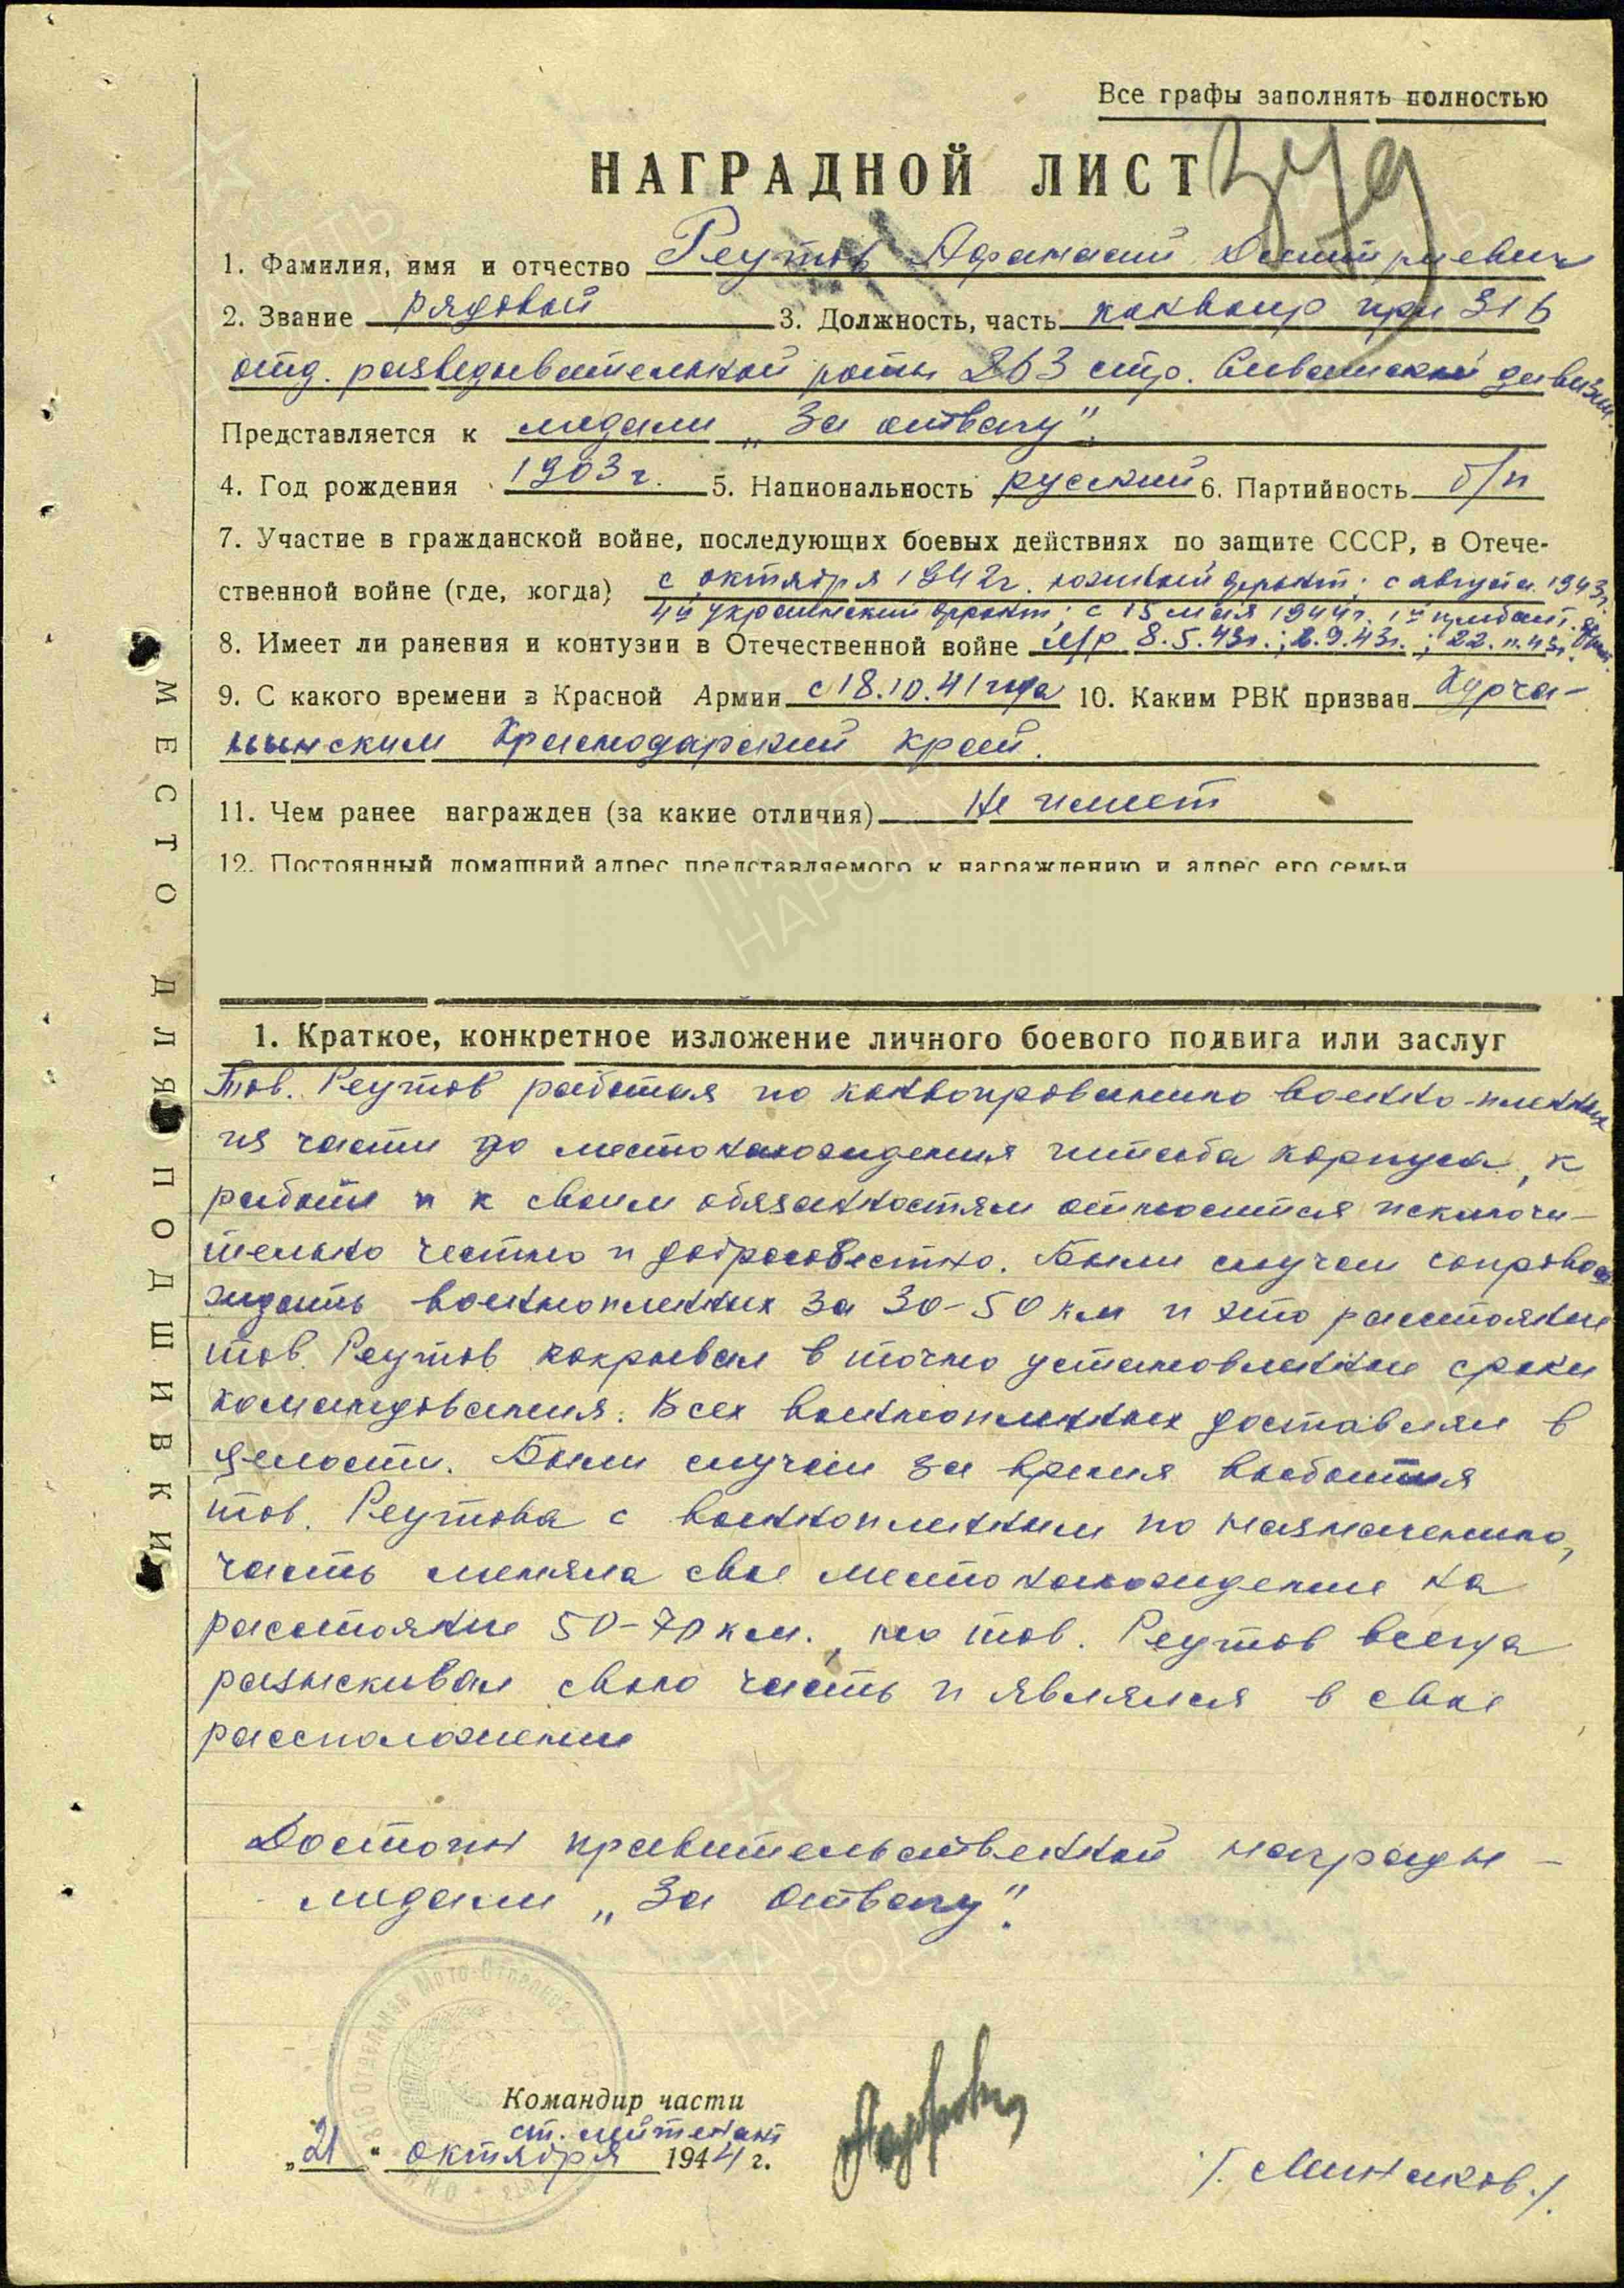 Все графы заполнять полностью
НАГРАДНОЙ ЛИСТ
1. Фамилия, имя и отчество Реутов Афанасий Дмитриевич
2. Звание рядовой 3. Должность, часть конвоир при 316
отд. разведывательной роты 263 стр. Сивашской дивизии
Представляется к медали „За отвагу".
4. Год рождения 1903 г. 5. Национальность русский 6. Партийность б/п
7. Участие в гражданской войне, последующих боевых действиях по защите СССР, в Отече-
ственной войне (где, когда) с октября 1942 г. южный фронт; с августа 1943 г.
4й украинский фронт; с 15 мая 1944 г. 1й прибалт. фронт.
8. Имеет ли ранения и контузии в Отечественной войне л/р 8.5.43г.; 2.9.43г.; 22.11.43г.
9. С какого времени в Красной Армии с 18.10.41 года 10. Каким РВК призван Курча-
нынским Краснодарский край.
11. Чем ранее награжден (за какие отличия) Не имеет
12. Постоянный домашний адрес представляемого к награждению и адрес его семьи
МЕСТО ДЛЯ ПОДШИВКИ
1. Краткое, конкретное изложение личного боевого подвига или заслуг
Тов. Реутов работая по конвоированию военно-пленных
из части до местонахождения штаба корпуса, к
работе и к своим обязанностям относится исключи-
тельно честно и добросовестно. Были случаи сопровож
ждать военнопленных за 30-50 км и это расстояние
тов. Реутов покрывал в точно установленные сроки
командования. Всех военнопленных доставлял в
целости. Были случаи за время выбытия
тов. Реутова с военнопленными по назначению,
часть меняла свое местонахождение на
расстояние 50-70 км., но тов. Реутов всегда
разыскивал свою часть и являлся в свое
рассположение
Достоин правительственной награды –
медали „За отвагу".
Командир части
ст. лейтенант
„21" октября 1944 г.
/. Минаков./.